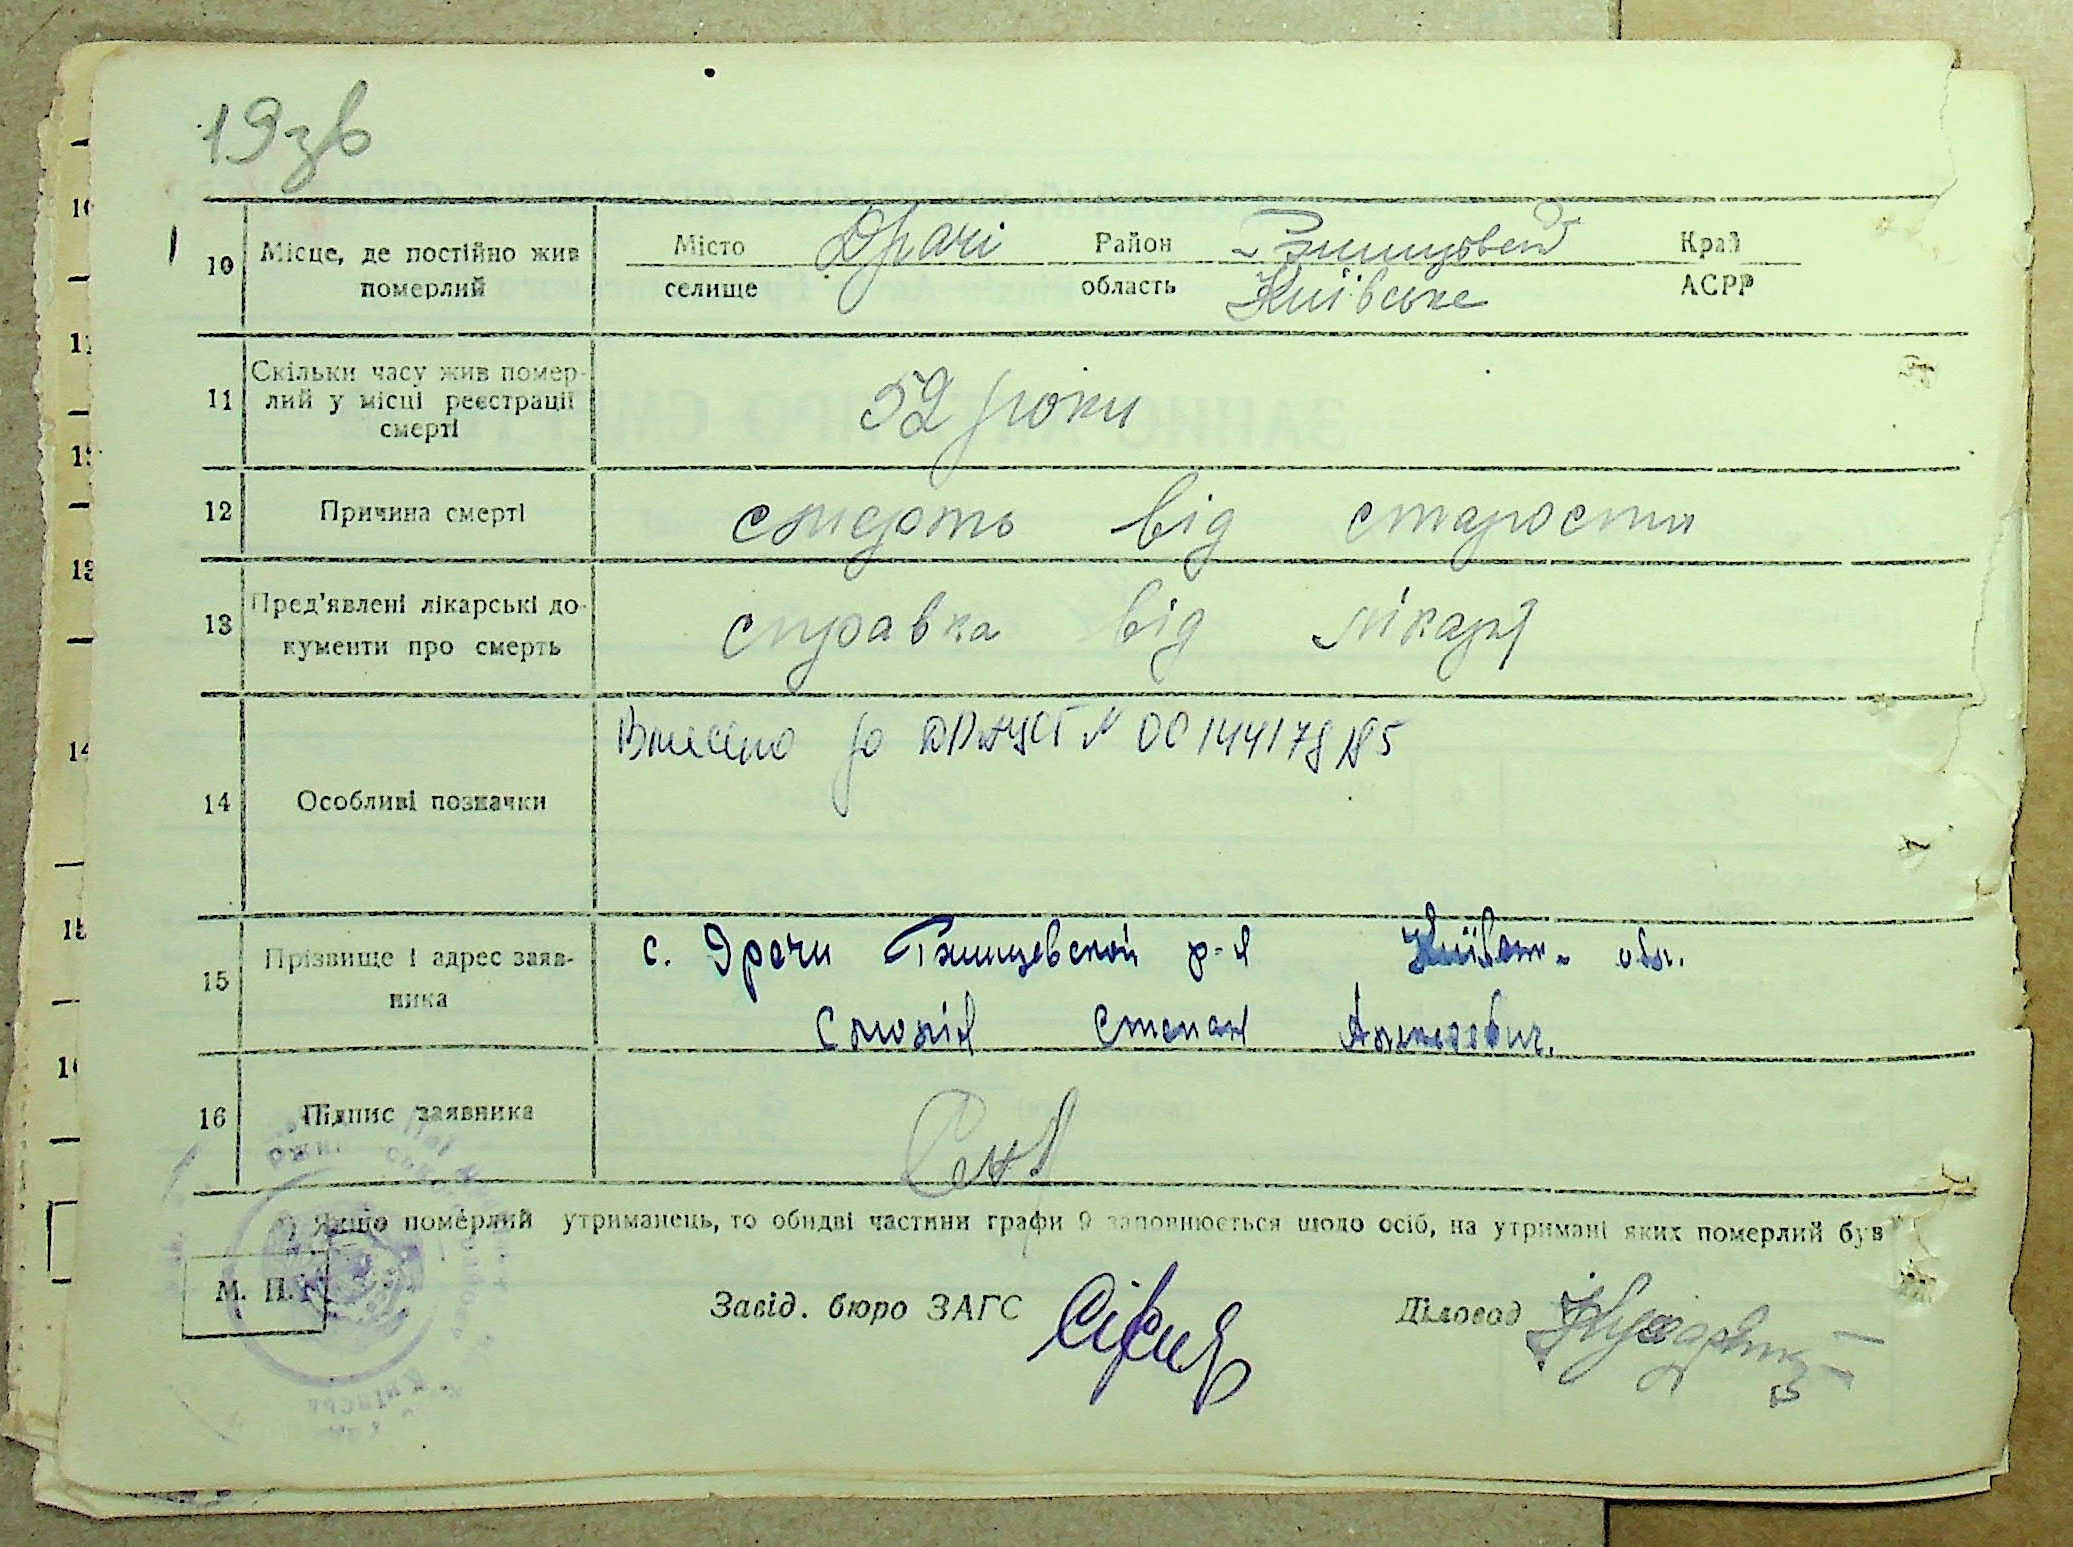 19 зв
10 Місце, де постійно жив померлий
Місто Драчі Район Край
селище область Київське АСРР
11 Скільки часу жив помер-
лий у місці реєстрації
смерті
52 роки
12 Причина смерті смерть від старости
13 Пред'явлені лікарські до-
кументи про смерть
справка від лікаря
14 Особливі позначки
Внесено до ДРАЦСГ № 00144178185
15 Прізвище і адрес заяв-
ника
с. Драчи р-н обл.
Степан
16 Підпис заявника
*) Якщо померлий утриманець, то обидві частини графи 9 заповнюється щодо осіб, на утримані яких померлий був
М. П. Завід. бюро ЗАГС Діловод